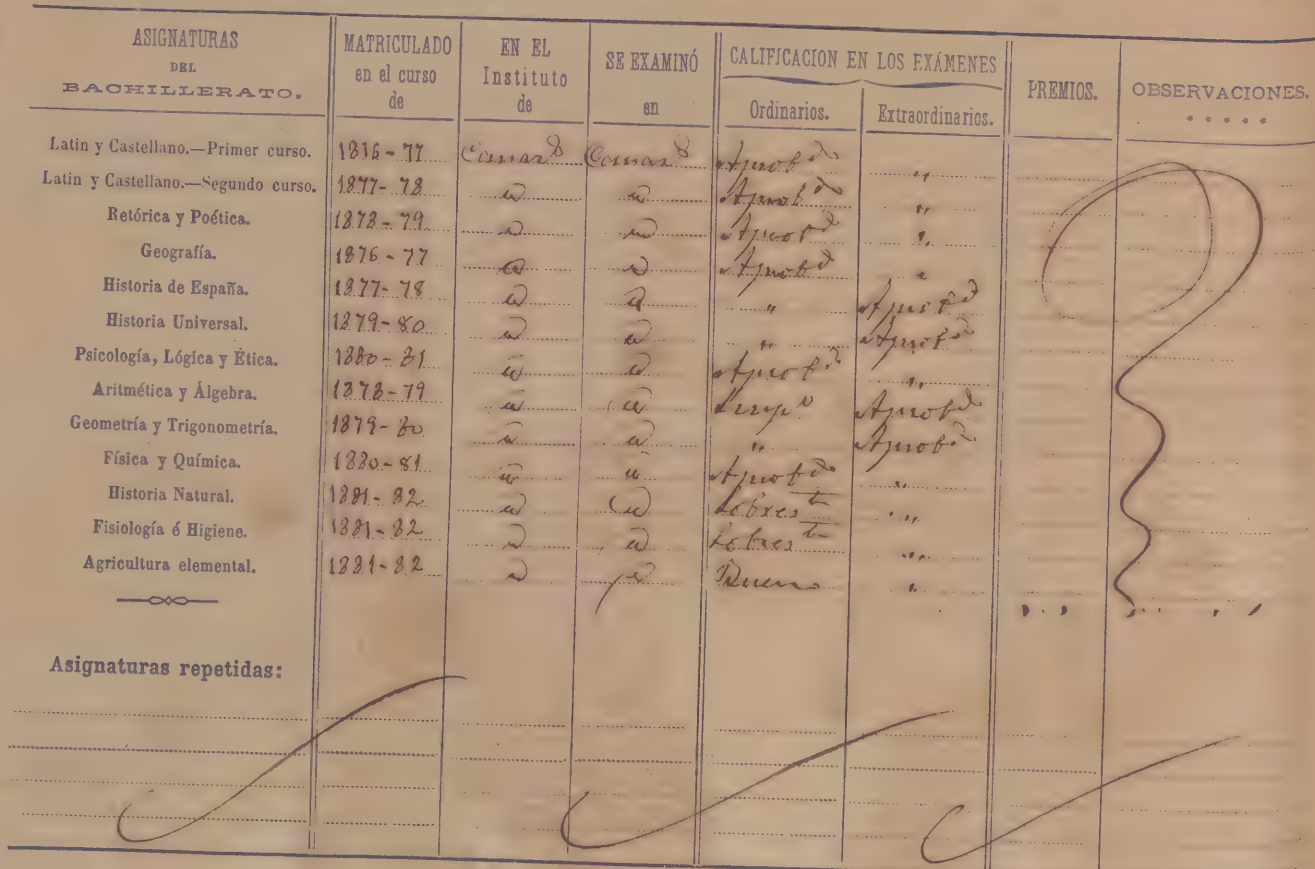 ASIGNATURAS DEL BACHILLERATO. MATRICULADO en el curso de EN EL Instituto de SE EXAMINÓ en CALIFICACION EN LOS EXÁMENES Ordinarios. Extraordinarios. PREMIOS. OBSERVACIONES.
Latin y Castellano.—Primer curso. 1876-77 Aprobdo "
Latin y Castellano.—Segundo curso. 1877-78 Aprobdo "
Retórica y Poética. 1878-79 Aprobdo "
Geografía. 1876-77 Aprobdo "
Historia de España. 1877-78 " Aprobdo
Historia Universal. 1879-80 " Aprobdo
Psicología, Lógica y Ética. 1880-81 Aprobdo "
Aritmética y Álgebra. 1878-79 Suspso Aprobdo
Geometría y Trigonometría. 1879-80 " Aprobdo
Física y Química. 1880-81 Aprobdo "
Historia Natural. 1881-82 Sobreste "
Fisiología é Higiene. 1881-82 Sobreste "
Agricultura elemental. 1881-82 Bueno "
Asignaturas repetidas: